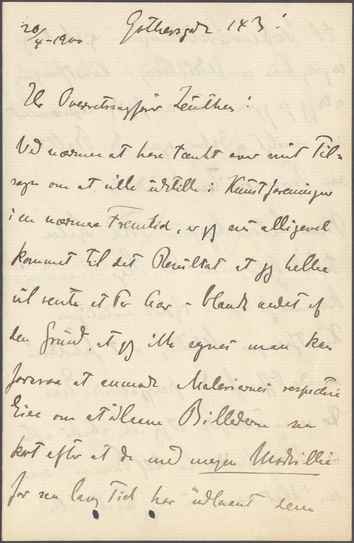 20/4-1900
Gothersgade 143!
Hr Overretssagfører Zeuthen!
Ved nærmere at have tænkt over mit Til-
sagn om at ville udstille i Kunstforeningen
i en nærmere Fremtid, er jeg nu alligevel
kommet til det Resultat at jeg hellere
vil vente et Par Aar – blandt andet af
den Grund, at jeg ikke egner man kan
forsvare at anmode Maleriernes respective
Eiere om at udlaane Billederne saa
kort efter at de med megen Modvillie
for saa lang Tid har udlaant dem